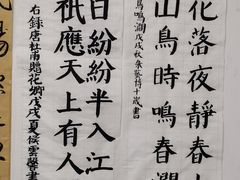 花落夜靜春
山鳥時鳴春澗
鳥鳴澗戊戌秋 十歲書
日紛紛半入江
祇應天上有人
右錄唐杜甫贈花卿戊戌夏侯雲馨書